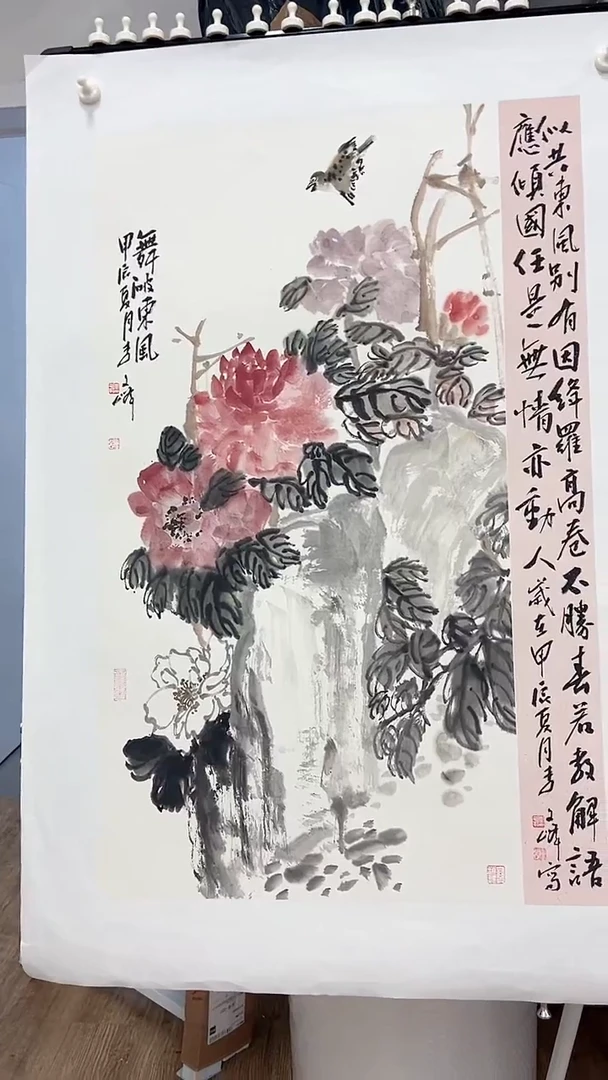 似共東風別有因絳羅高卷不勝春若教解語
應傾國任是無情亦動人歲在甲辰夏月李文峰寫
舞破東風
甲辰夏月李文峰